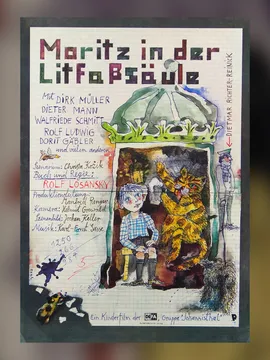 Moritz in der
Litfaßsäule
Mit DIRK MÜLLER
DIETER MANN
WALFRIEDE SCHMITT
ROLF LUDWIG
DORIT GÄBLER
und vielen anderen
Szenarium: Christa Kožik
Buch und Regie:
ROLF LOSANSKY
Produktionsleitung:
Kamera: Helmut Grewald
Szenenbild: Jochen Keller
Musik: Karl-Ernst Sasse
← DIETMAR RICHTER-REINICK
Ein Kinderfilm der DEFA, Gruppe "Johannisthal"